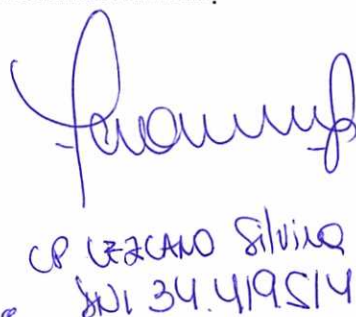 CP LEZCANO Silvina
DNI 34.419514